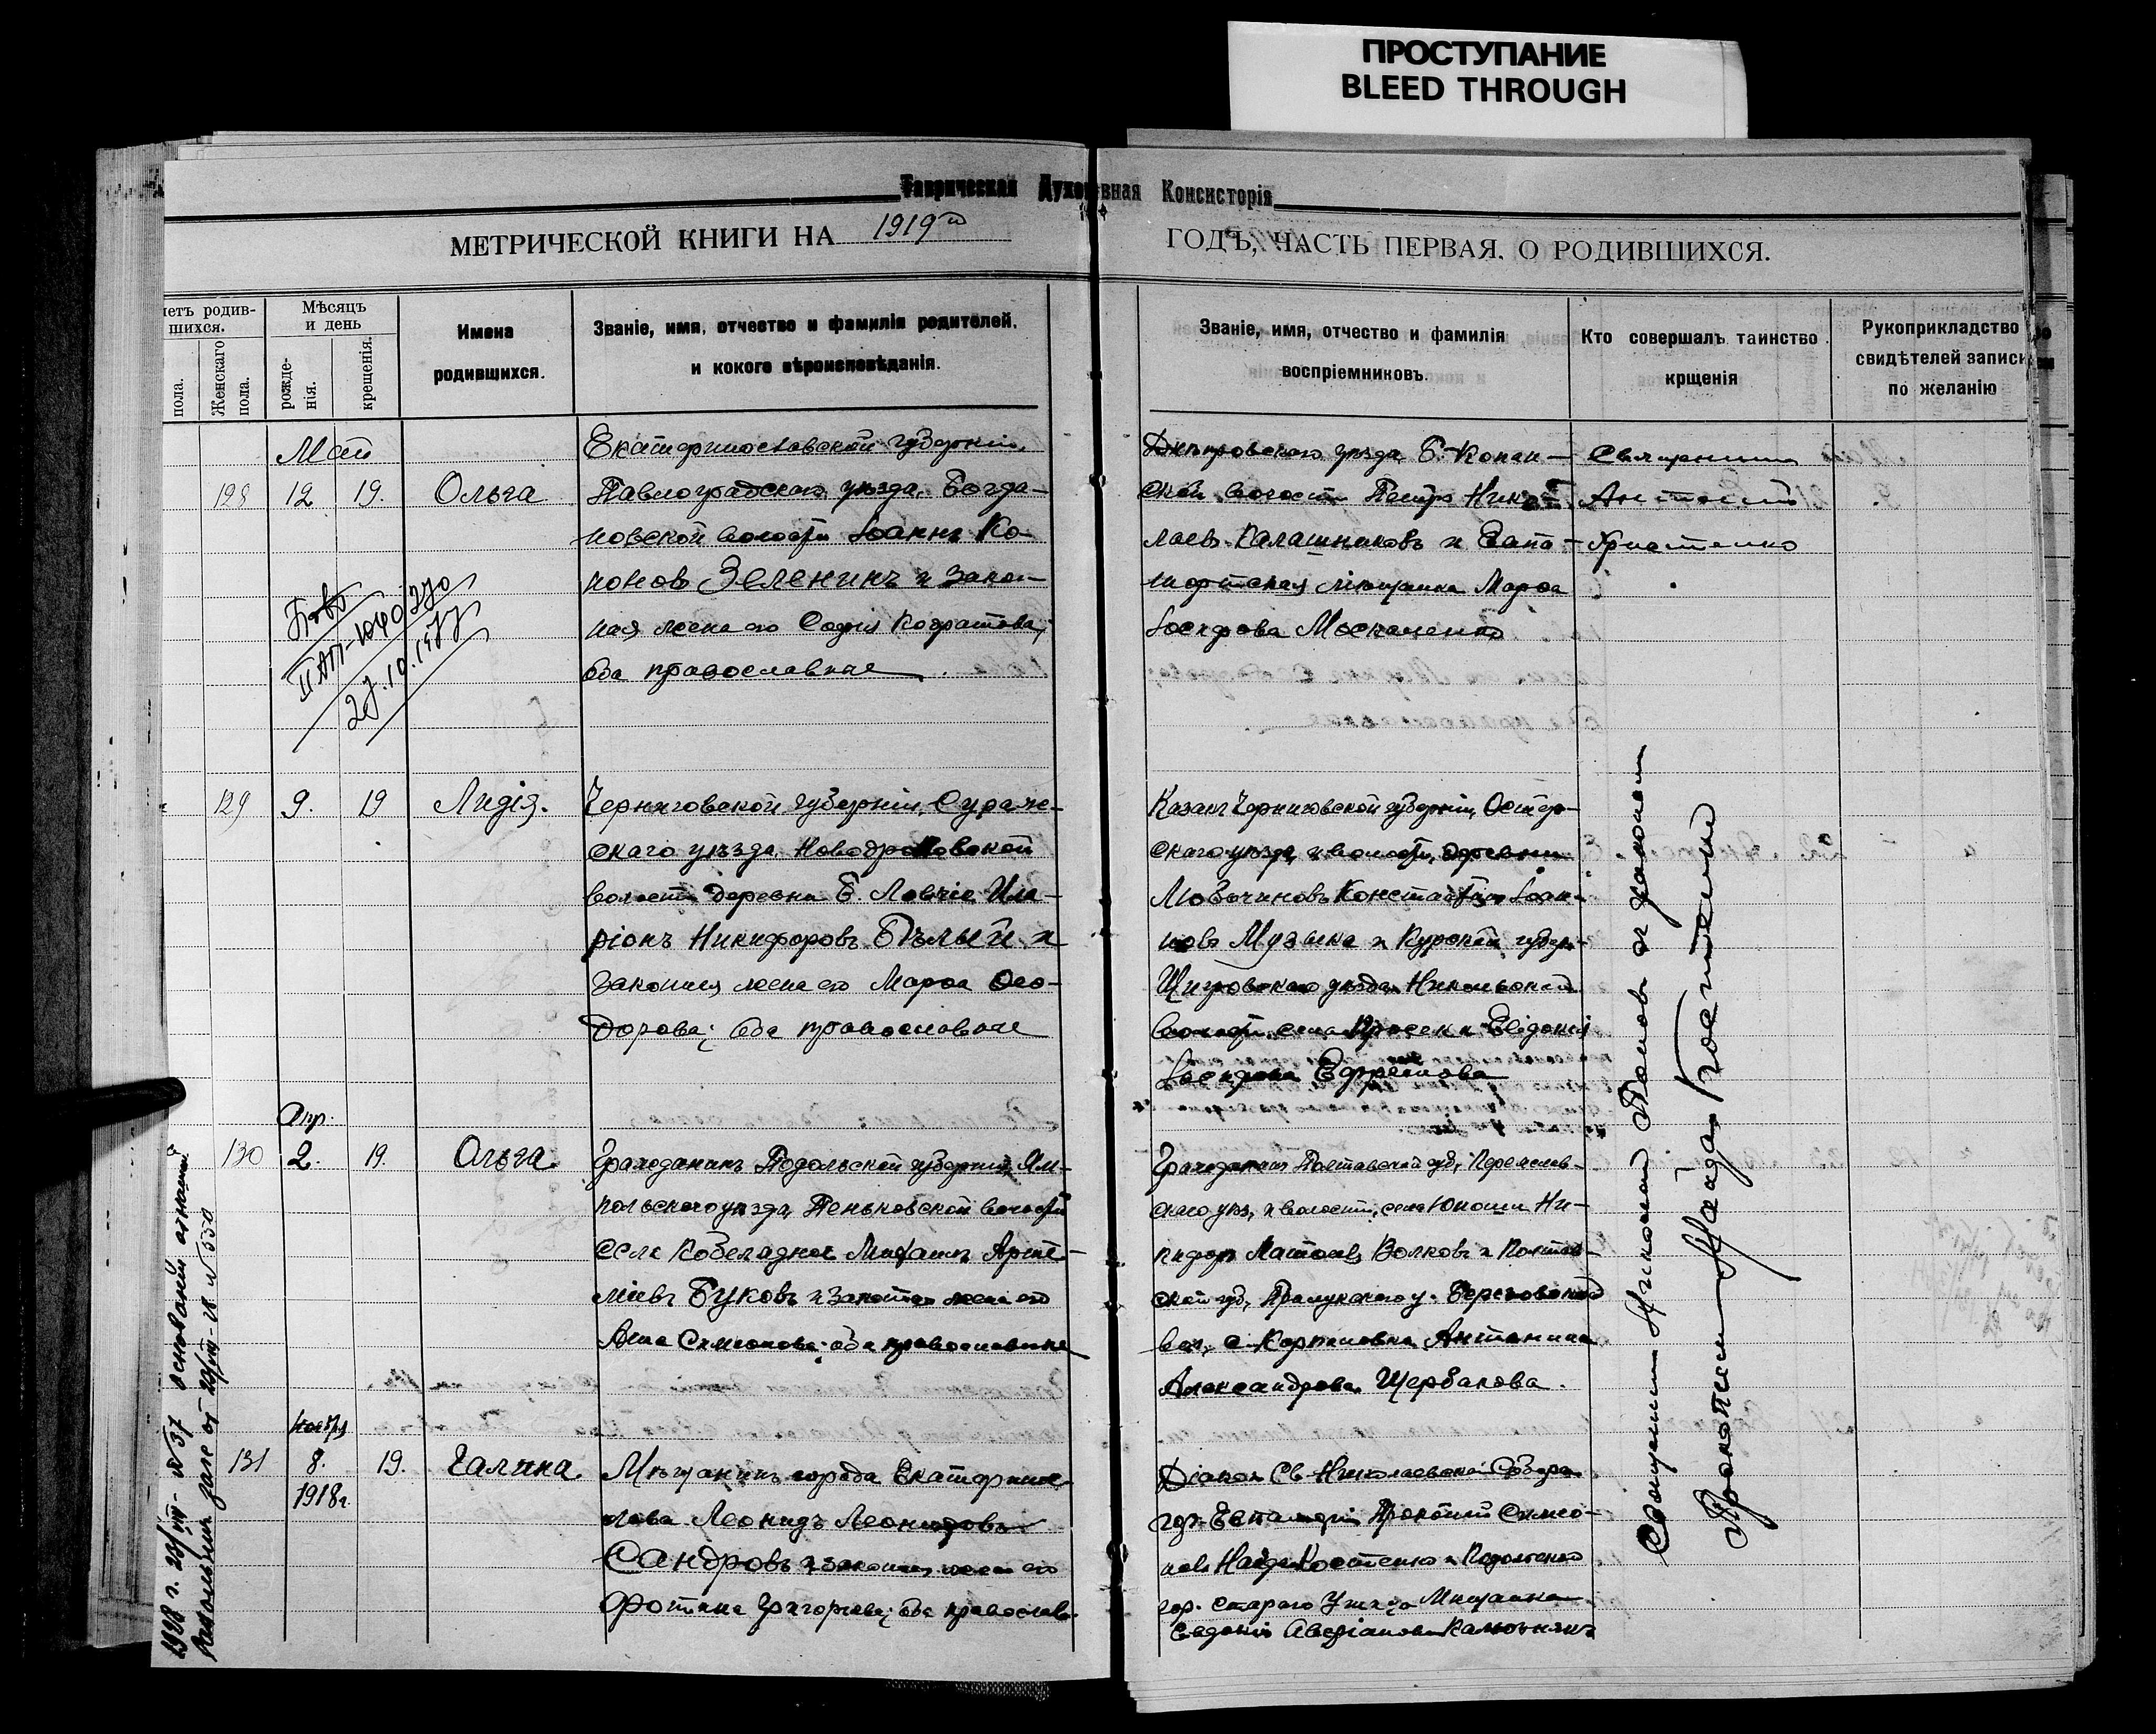 ПРОСТУПАНИЕ
BLEED THROUGH
Таврическая Духовная Консисторія
МЕТРИЧЕСКОЙ КНИГИ НА 1919й
ГОДЪ, ЧАСТЬ ПЕРВАЯ, О РОДИВШИХСЯ.
четъ родив-
шихся.
пола.
Женскаго пола.
Мѣсяцъ
и день
рожде-
нія.
крещенія.
Имена
родившихся.
Званіе, имя, отчество и фамилія родителей,
и кокого вѣроисповѣданія.
Званіе, имя, отчество и фамилія
воспріемниковъ.
Кто совершалъ таинство
крщенія
Рукоприкладство
свидѣтелей записи
по желанію
Май
128 12 19. Ольга
Екатеринославской губерніи,
Павлоградскаго уѣзда, Богда-
новской волости Іоаннъ Ко-
новъ Зеленинъ и закон-
ная жена его Софія Кодратова,
оба православные
Днѣпровскаго уѣзда Б. Копан-
ской волости Петръ Нико-
лаевъ Калашниковъ и Евпа-
торійская мѣщанка Марѳа
Іосифова Москаленко
Священник
Антоній
Христенко
27.10.1977
129 9. 19 Лидія.
Черниговской губерніи, Сураж-
скаго уѣзда, Новодроковской
волости деревни Б. Ловчіе Ила-
ріонъ Никифоровъ Бѣлый и
законная жена его Марѳа Ѳео-
дорова; оба православные
Казакъ Черниговской губерніи, Остер-
скаго уѣзда, и волости, деревни
Константинъ Іоан-
новъ Музыка и Курской губер.
Щигровскаго уѣзда Никольской
волости, села и Евдокія
Іосифова Ефремова
Апр.
130 2. 19. Ольга
Гражданинъ Подольской губерніи, Ям-
польскаго уѣзда, Пеньковской волости
села Михаилъ Арте-
міевъ Буковъ и законная жена его
Анна Симеонова; оба православные
Гражданинъ Полтавской губ, Переяслав-
скаго уѣз, и волости, села Юноши Ни-
кифоръ Волковъ и Полтав-
ской губ, Прилукскаго у. Березовской
вол, с. Карпиловка Антонина
Александрова Щербакова.
Ноября
131 8. 19. Галина.
1918г.
Мѣщанинъ города Екатерино-
слава Леонидъ Леонидовъ
Сандровъ и законная жена его
Фотина Григорьева; оба православ.
Діаконъ Св Николаевскаго Собора
гор. Евпаторіи Прокопій Симео-
новъ Найда-Костенко и Подольской
гор. Стараго Ушица Мѣщанка
Евдокія
Священник Николай Попов и діакон
Прокопій Найда-Костенко
1928 г. 20/VIII - №37 основаніи
от 20/VIII-28 №550